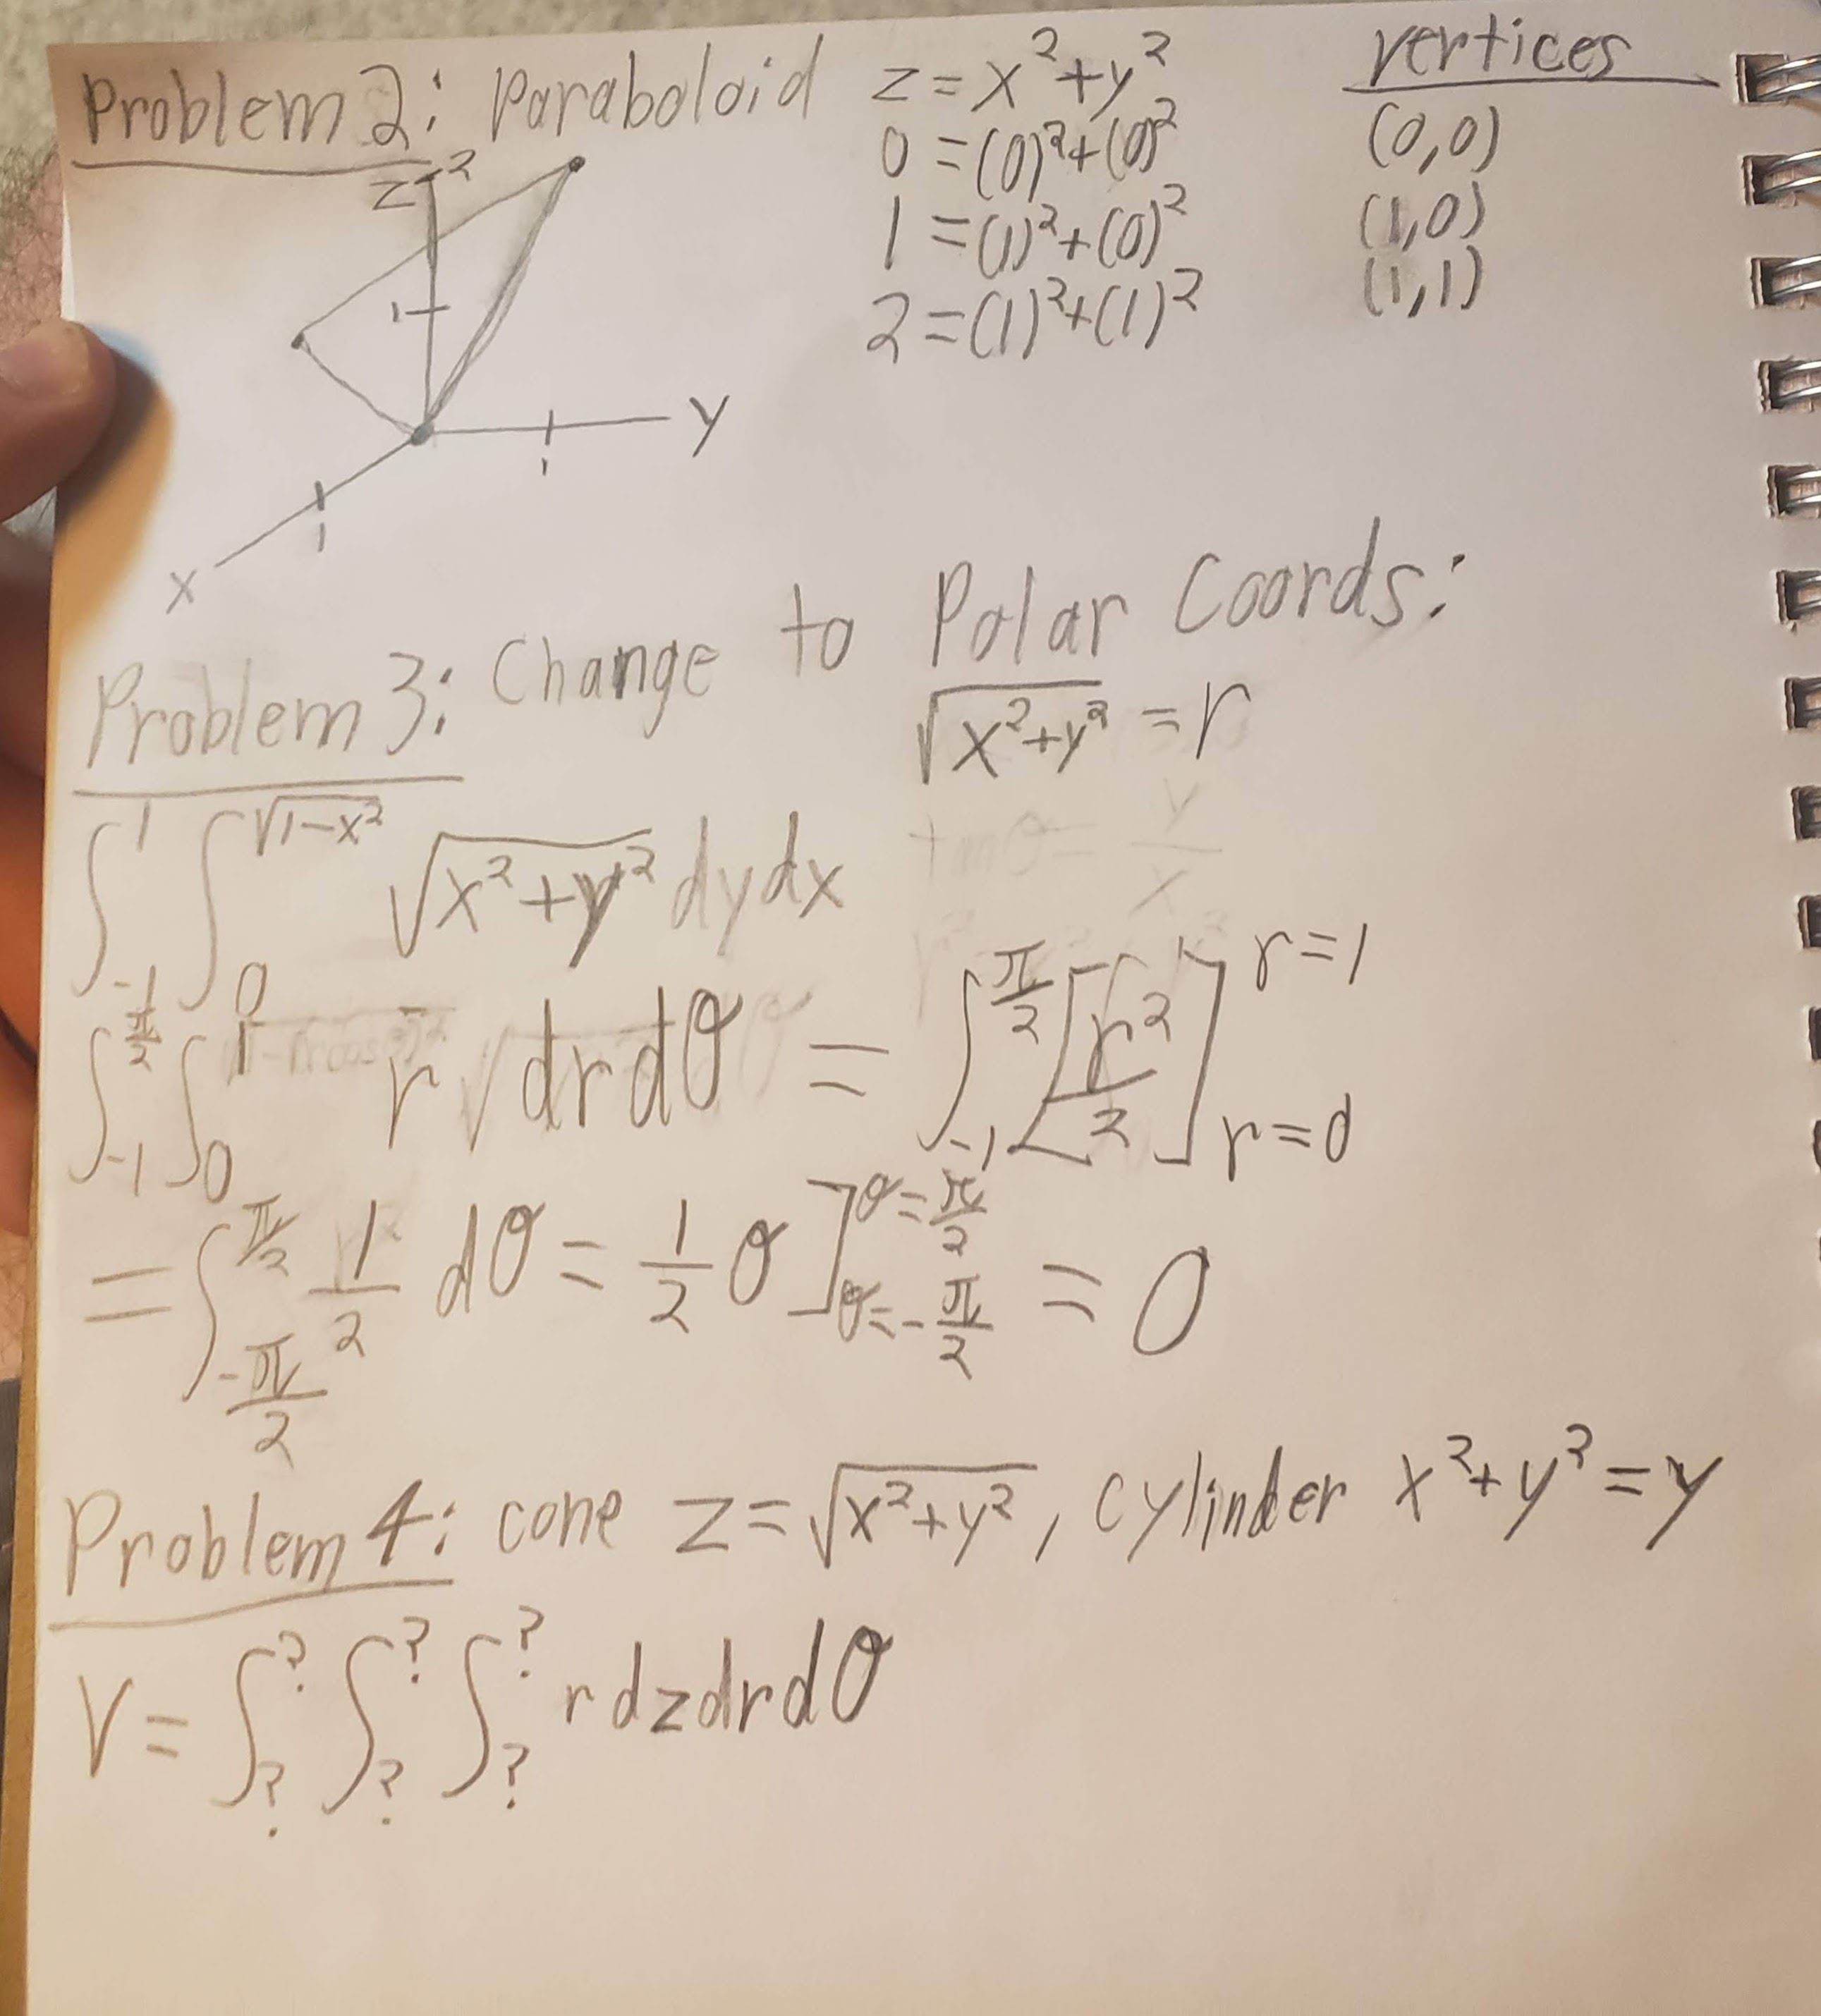 Problem 2: Paraboloid z = x² + y²
0 = (0)² + (0)²
1 = (1)² + (0)²
2 = (1)² + (1)²
vertices
(0,0)
(1,0)
(1,1)
z 2
1
y
1
1
x
Problem 3: Change to Polar Coords:
√(x² + y²) = r
tanθ = y/x
∫_{-1}^{1} ∫_{0}^{√(1-x²)} √(x² + y²) dydx
∫_{-1}^{π/2} ∫_{0}^{1} r drdθ = ∫_{-1}^{π/2} [r²/2]_{r=0}^{r=1}
= ∫_{-π/2}^{π/2} 1/2 dθ = 1/2 θ]_{θ=-π/2}^{θ=π/2} = 0
Problem 4: cone z = √(x² + y²), cylinder x² + y² = y
V = ∫_{?}^{?} ∫_{?}^{?} ∫_{?}^{?} r dzdrdθ